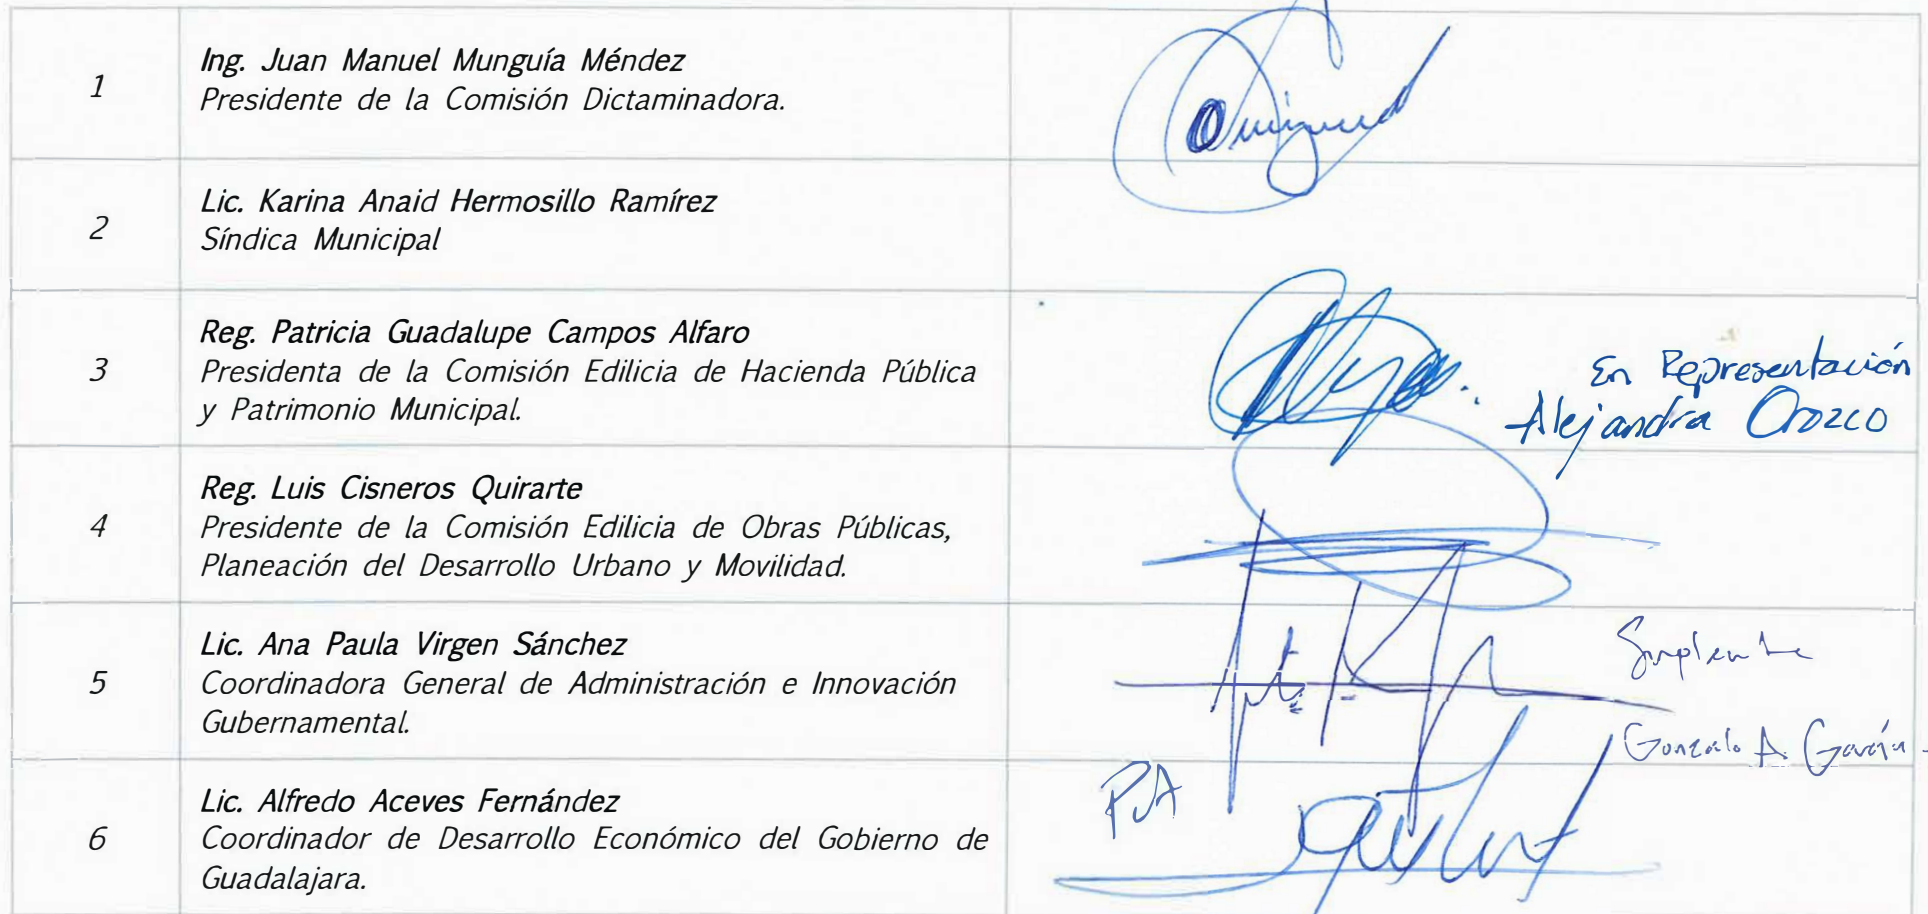 1
Ing. Juan Manuel Munguía Méndez
Presidente de la Comisión Dictaminadora.
2
Lic. Karina Anaid Hermosillo Ramírez
Síndica Municipal
3
Reg. Patricia Guadalupe Campos Alfaro
Presidenta de la Comisión Edilicia de Hacienda Pública
y Patrimonio Municipal.
En Representación
Alejandra Orozco
4
Reg. Luis Cisneros Quirarte
Presidente de la Comisión Edilicia de Obras Públicas,
Planeación del Desarrollo Urbano y Movilidad.
5
Lic. Ana Paula Virgen Sánchez
Coordinadora General de Administración e Innovación
Gubernamental.
Suplente
Gonzalo A. García
6
Lic. Alfredo Aceves Fernández
Coordinador de Desarrollo Económico del Gobierno de
Guadalajara.